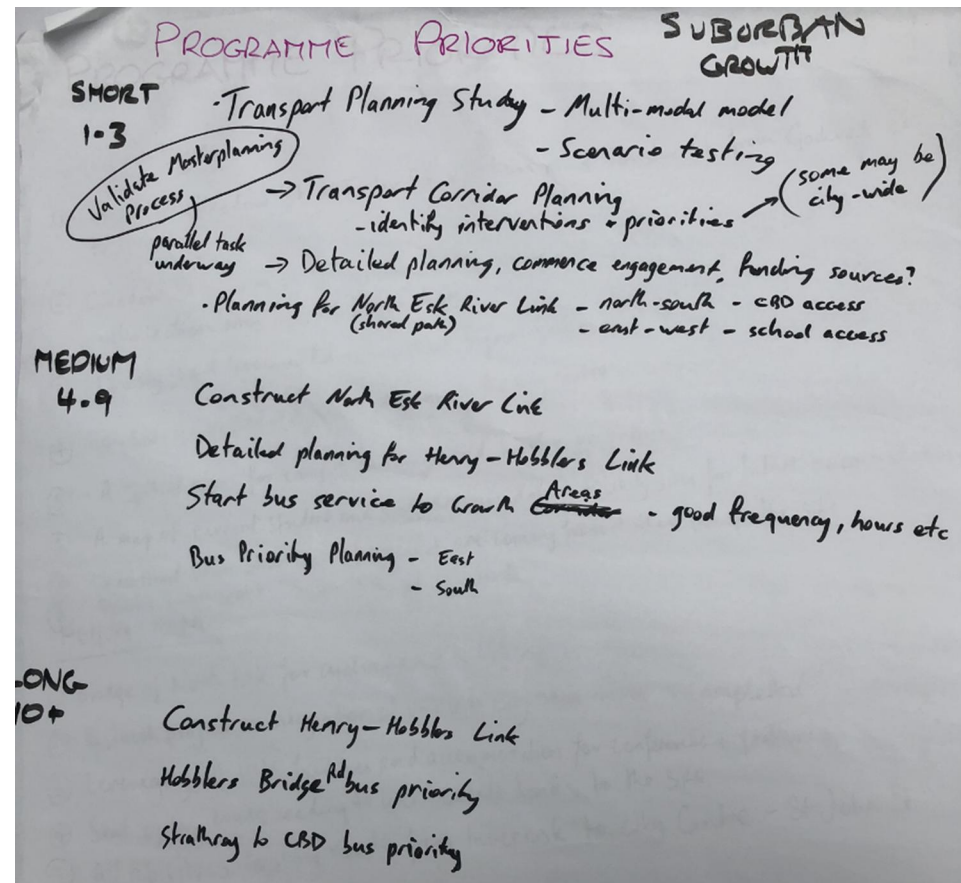 PROGRAMME PRIORITIES
SUBURBAN
GROWTH
SHORT
1-3
· Transport Planning Study - Multi-modal model
- Scenario testing
Validate Masterplanning
Process
parallel task
underway
→ Transport Corridor Planning
- identify interventions + priorities → (some may be
city-wide)
→ Detailed planning, commence engagement, funding sources?
· Planning for North Esk River Link - north-south - CBD access
(shared path) - east-west - school access
MEDIUM
4-9
Construct North Esk River Link
Detailed planning for Henry-Hobblers Link
Start bus service to Growth Areas - good frequency, hours etc
Bus Priority Planning - East
- South
LONG
10+
Construct Henry-Hobblers Link
Hobblers Bridge Rd bus priority
Strathroy to CBD bus priority